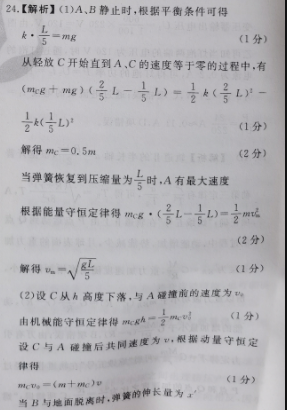 24.【解析】(1)A、B 静止时,根据平衡条件可得
k·L/5=mg (1分)
从轻放 C 开始直到 A、C 的速度等于零的过程中,有
(m_C g+mg)(2/5 L-1/5 L)=1/2 k(2/5 L)²-
1/2 k(1/5 L)² (1分)
解得 m_C=0.5m (2分)
当弹簧恢复到压缩量为 L/5 时,A 有最大速度
根据能量守恒定律得 m_C g·(2/5 L-1/5 L)=1/2 mv_m²
(2分)
解得 v_m=√(gL/5) (1分)
(2)设 C 从 h 高度下落,与 A 碰撞前的速度为 v₀
由机械能守恒定律得 m_C gh=1/2 m_C v₀² (1分)
设 C 与 A 碰撞后共同速度为 v,根据动量守恒定
律得
m_C v₀=(m+m_C)v (1分)
当 B 与地面脱离时,弹簧的伸长量为 x′